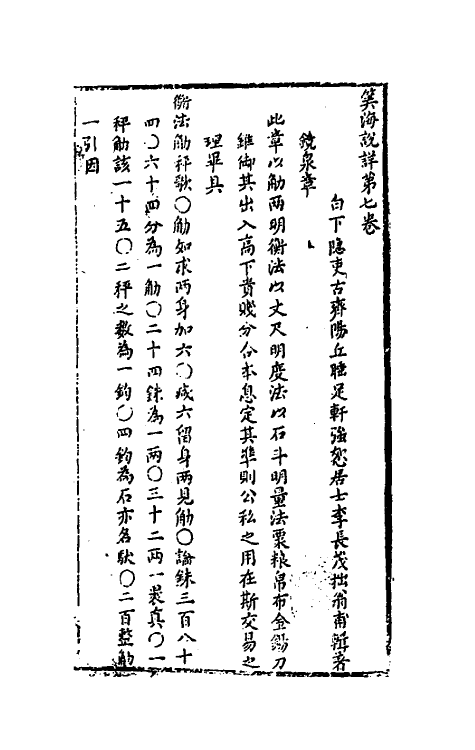 筭海說詳第七卷
白下隱吏古齊陽丘睡足軒強恕居士李長茂拙翁甫輯著
鏡泉章
此章以觔兩明衡法以丈尺明度法以石斗明量法粟粮帛布金錫刀
錐御其出入高下貴賤分合本息定其準則公私之用在斯交易之
理畢具
衡法觔秤歌〇觔如求兩身加六〇減六留身兩見觔〇論銖三百八十
四〇六十四分為一觔〇二十四銖為一兩〇三十二兩一裹真〇一
秤觔該一十五〇二秤之數為一鈞〇四鈞為石亦名馱〇二百整觔
一引因